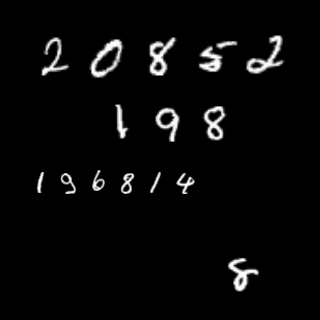 20852
198
196814
8